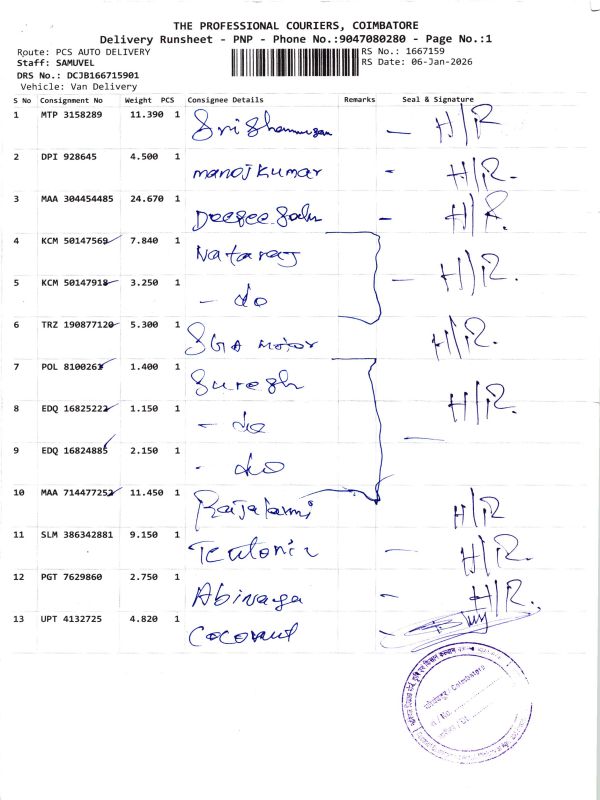 THE PROFESSIONAL COURIERS, COIMBATORE
Delivery Runsheet - PNP - Phone No.:9047080280 - Page No.:1
Route: PCS AUTO DELIVERY RS No.: 1667159
Staff: SAMUVEL RS Date: 06-Jan-2026
DRS No.: DCJB166715901
Vehicle: Van Delivery
S No Consignment No Weight PCS Consignee Details Remarks Seal & Signature
1 MTP 3158289 11.390 1 Sri Shanmugan - H/R
2 DPI 928645 4.500 1 manojkumar - H/R.
3 MAA 304454485 24.670 1 - H/R.
4 KCM 50147569 7.840 1 Nataraj
5 KCM 50147918 3.250 1 - do - H/R.
6 TRZ 190877120 5.300 1 SGA motor H/R.
7 POL 8100261 1.400 1 Suresh
8 EDQ 16825222 1.150 1 - do H/R.
9 EDQ 16824885 2.150 1 - do
10 MAA 714477252 11.450 1 Rajalaxmi H/R
11 SLM 386342881 9.150 1 Teutonic - H/R.
12 PGT 7629860 2.750 1 Abinaga - H/R.
13 UPT 4132725 4.820 1 Coconut -
कोयम्बटूर / Coimbatore